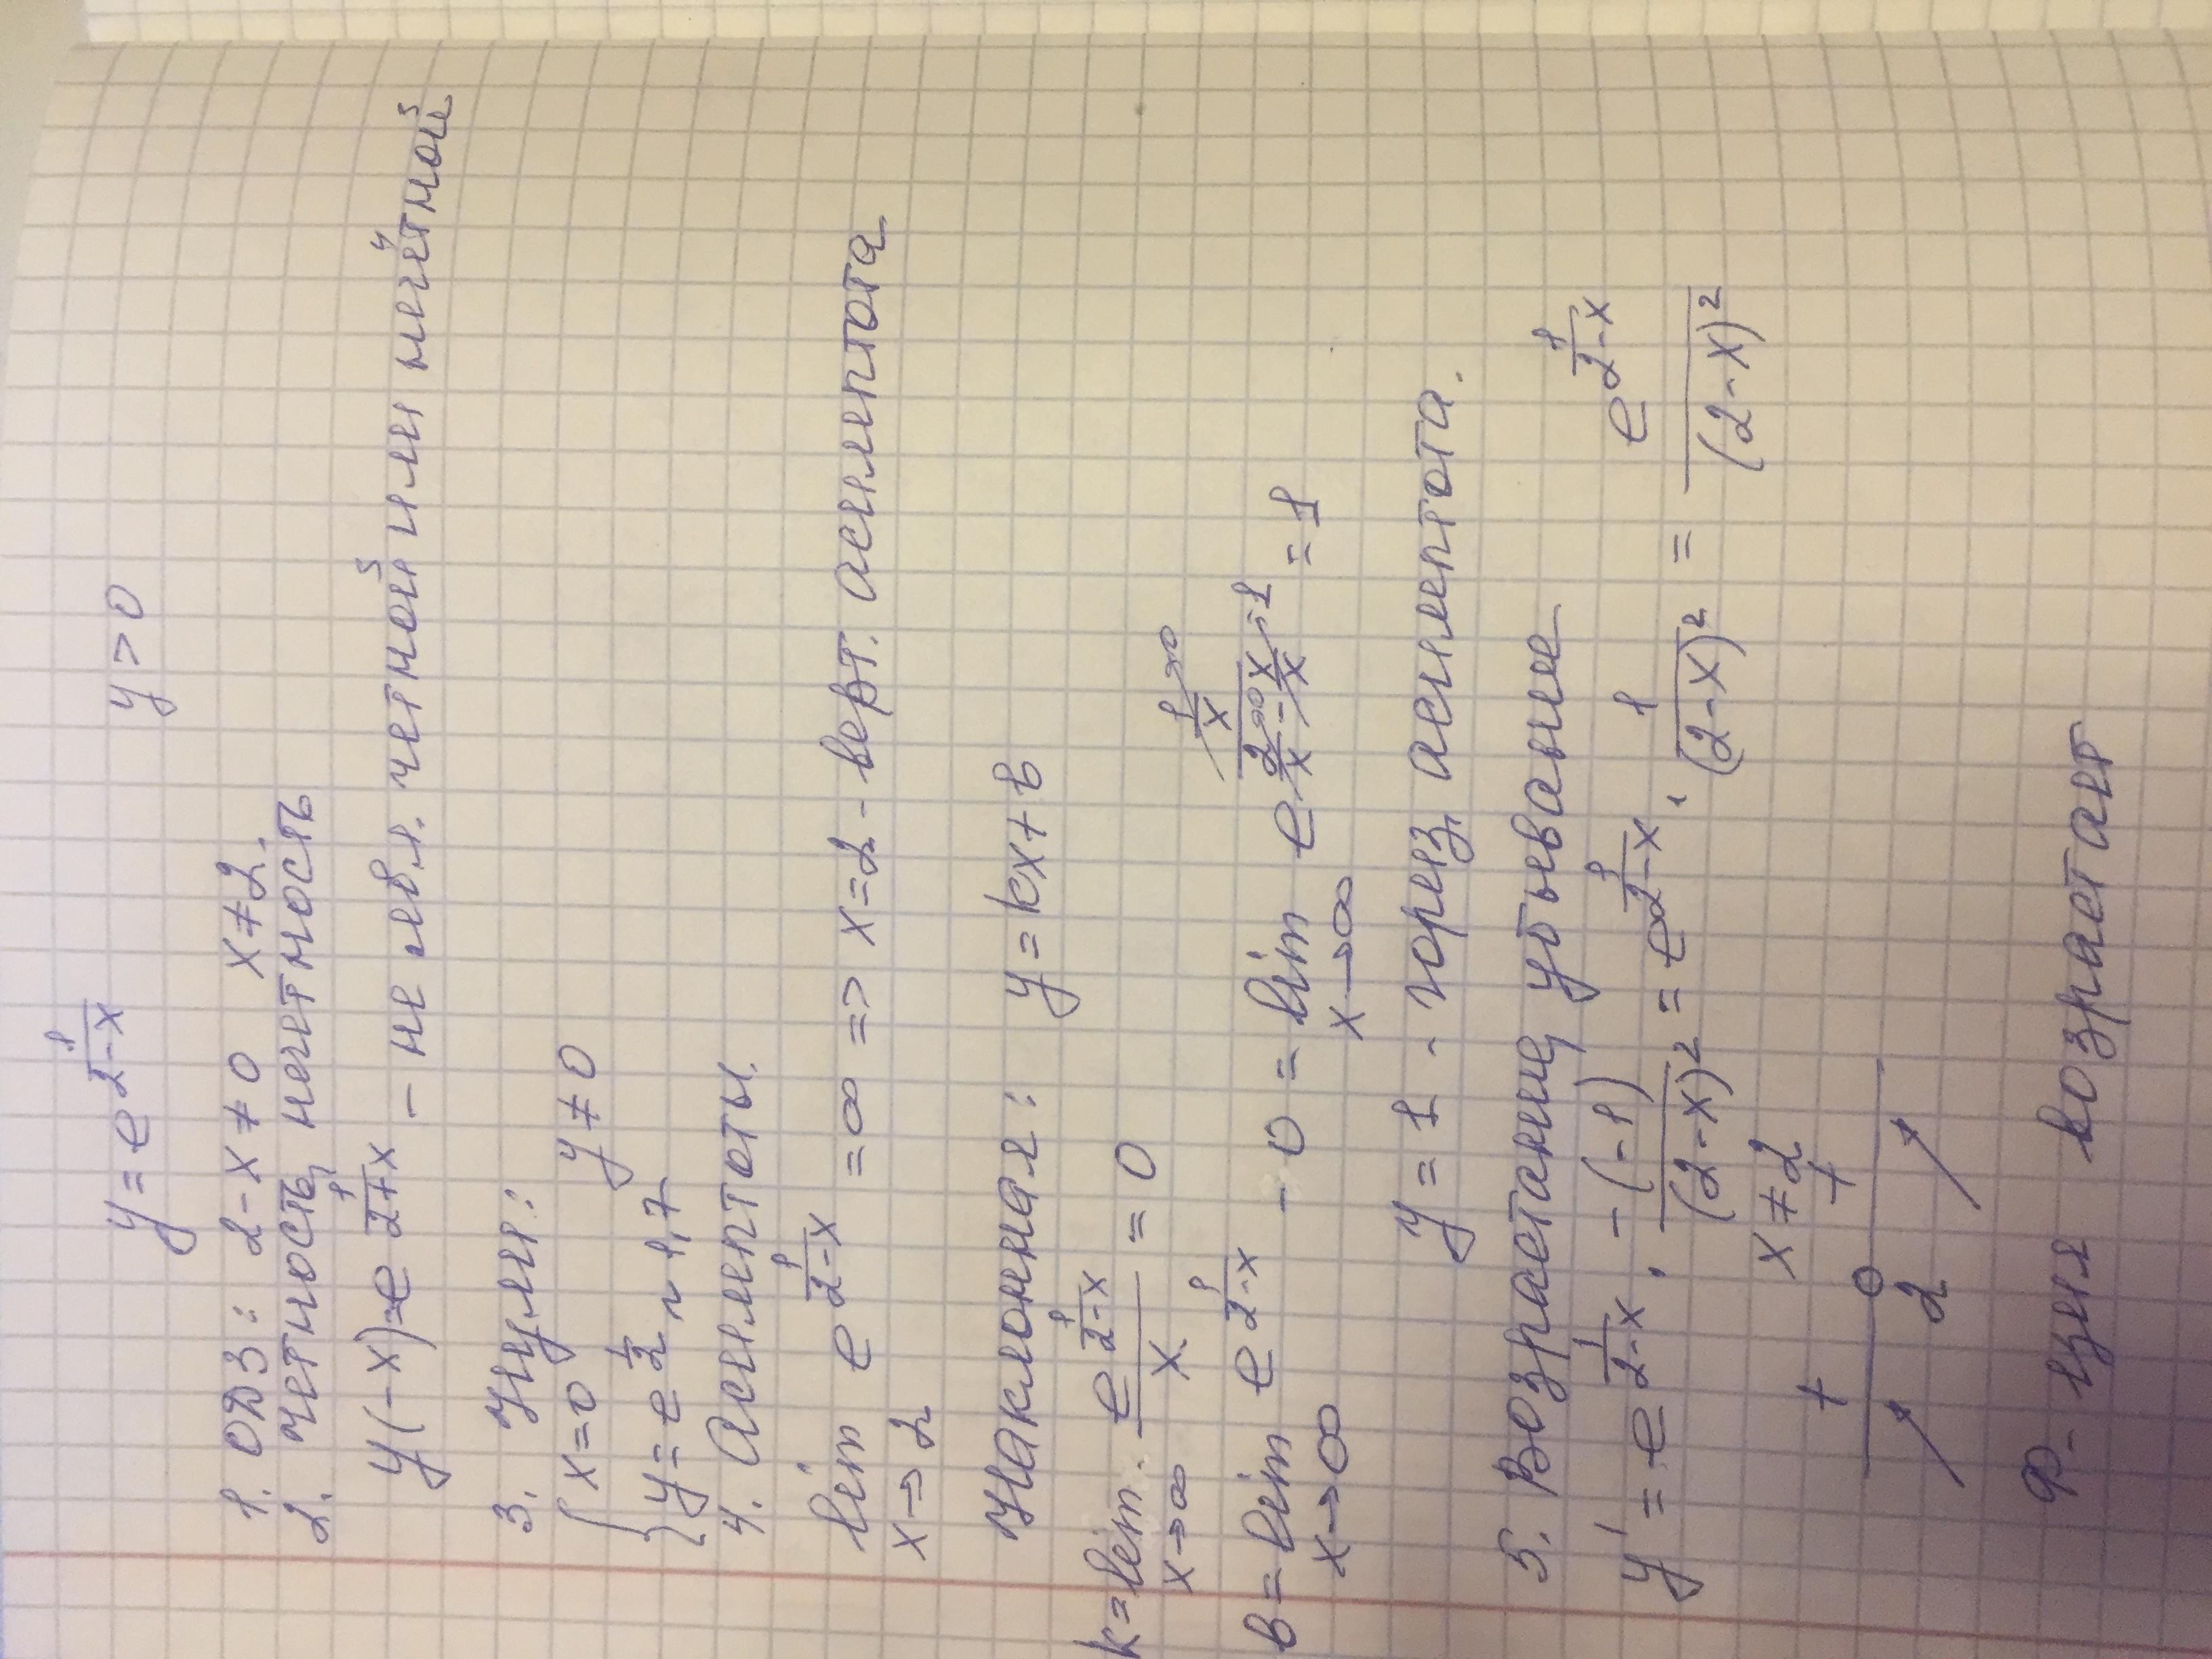 y = e^(1/(2-x))   y > 0
1. ОДЗ: 2-x ≠ 0   x ≠ 2.
2. четность, нечетность
y(-x) = e^(1/(2+x)) - не явл. четной или нечётной
3. Нули:
{ x=0   y ≠ 0
{ y = e^(1/2) ~ 1,7
4. Асимптоты.
lim_(x→2) e^(1/(2-x)) = ∞ => x=2 - верт. асимптота
Наклонная: y = kx+b
k = lim_(x→∞) e^(1/(2-x))/x = 0
b = lim_(x→∞) e^(1/(2-x)) - 0 = lim_(x→∞) e^((1/x →0)/(2/x →0 - x/x =1)) = 1
y = 1 - гориз. асимптота.
5. Возрастание, убывание
y' = e^(1/(2-x)) · -(-1)/(2-x)² = e^(1/(2-x)) · 1/(2-x)² = e^(1/(2-x))/(2-x)²
x ≠ 2
+ +
2
Ф-ция возрастает